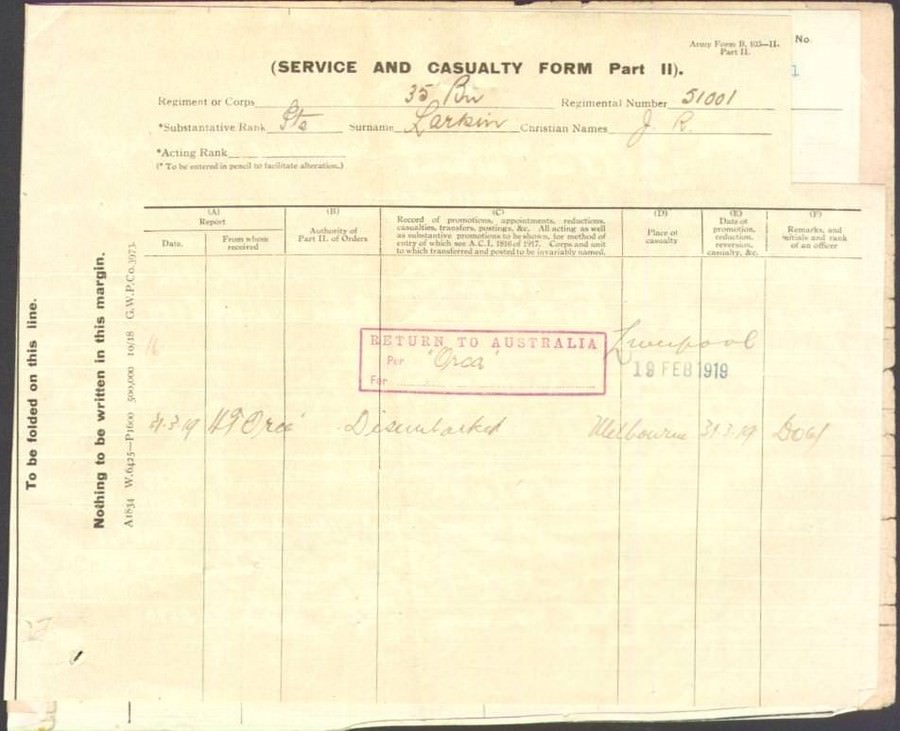 Army Form B. 103—II.
Part II.
No.
1
(SERVICE AND CASUALTY FORM Part II).
Regiment or Corps 35 Bn Regimental Number 51001
*Substantative Rank Pte Surname Larkin Christian Names J. R.
*Acting Rank
(* To be entered in pencil to facilitate alteration.)
(A)
Report
Date.
From whom
received
(B)
Authority of
Part II. of Orders
(C)
Record of promotions, appointments, reductions,
casualties, transfers, postings, &c. All acting as well
as substantive promotions to be shown, for method of
entry of which see A.C.I. 1816 of 1917. Corps and unit
to which transferred and posted to be invariably named.
(D)
Place of
casualty
(E)
Date of
promotion,
reduction,
reversion,
casualty, &c.
(F)
Remarks, and
initials and rank
of an officer
To be folded on this line.
Nothing to be written in this margin.
A1834 W.6425—P1600 500,000 10/18 G.W.P.Co.
RETURN TO AUSTRALIA
Per "Orca"
For
Liverpool
19 FEB 1919
31.3.19 HT Orca Disembarked Melbourne 31.3.19